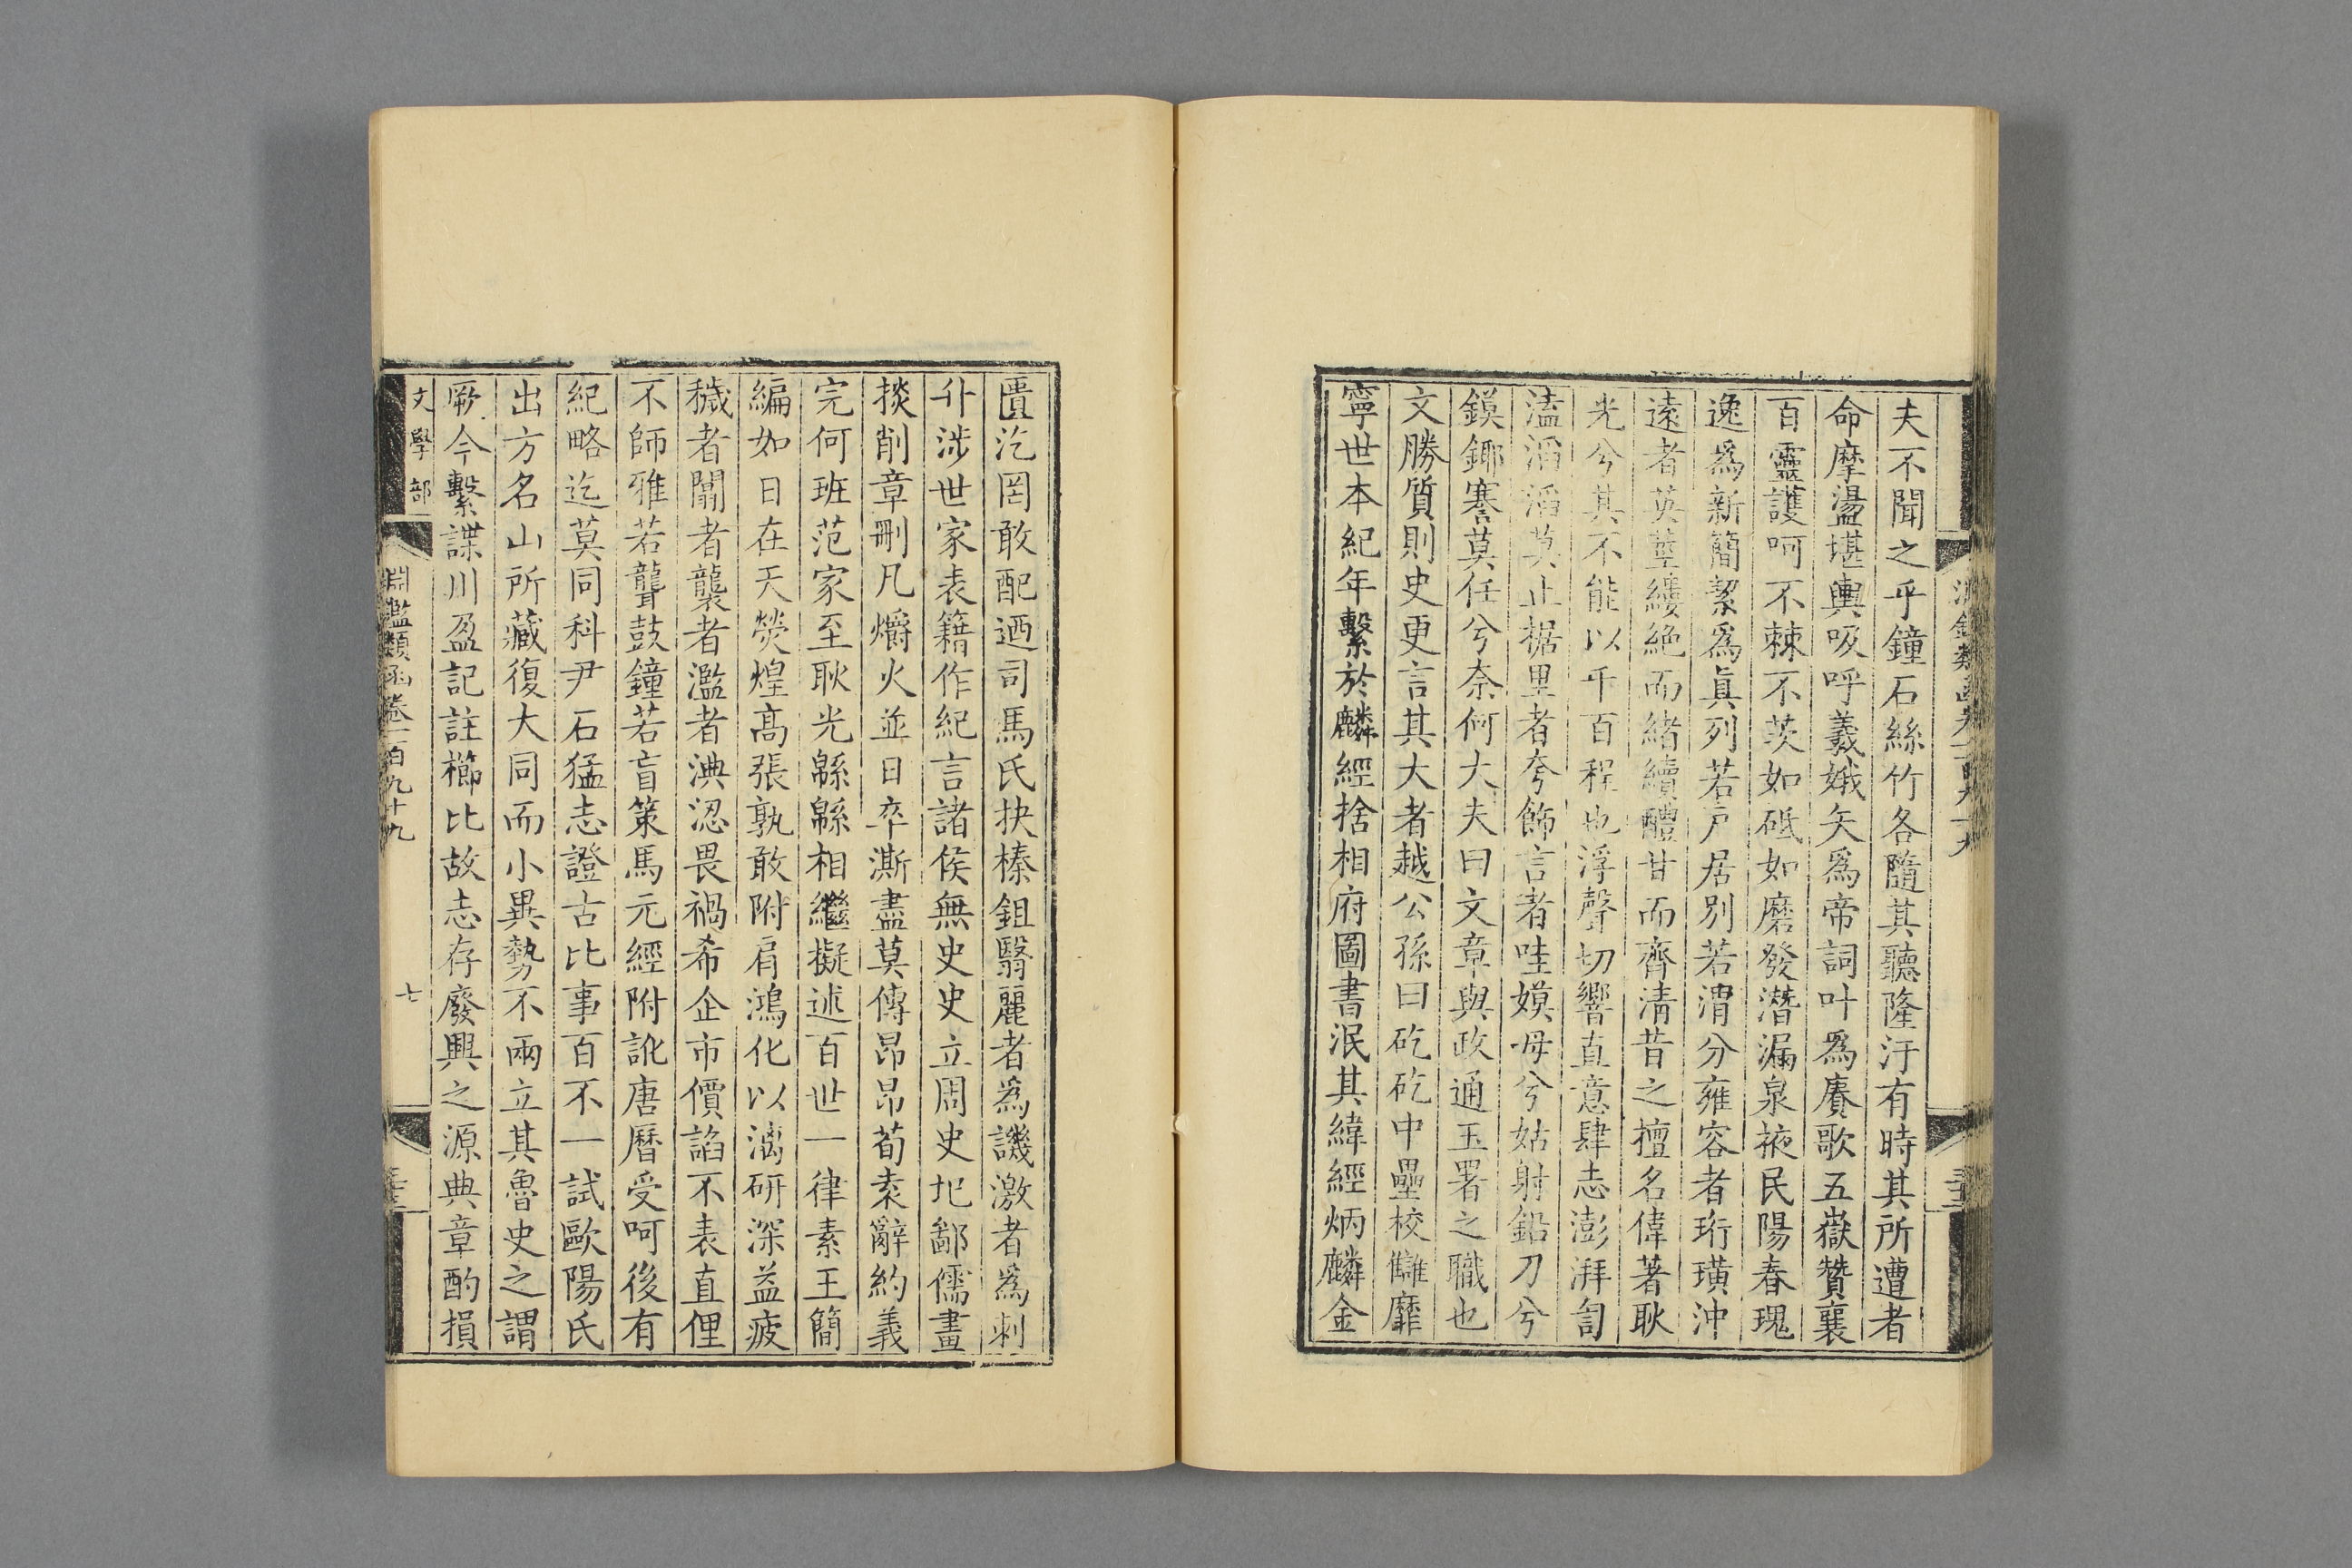 夫不聞之乎鐘石絲竹各隨其聽隆汙有時其所遭者
命摩盪堪輿吸呼羲娥矢爲帝詞叶爲賡歌五嶽贊襄
百靈護呵不棘不茨如砥如磨發潛漏泉掖民陽春瑰
逸爲新簡絜爲眞列若戸居別若渭分雍容者珩璜沖
遠者英莖縷絶而緒續醴甘而齊清昔之擅名偉著耿
光兮其不能以千百程也浮聲切響直意肆志澎湃訇
溘滔滔莫止椐里者夸飾言者哇嫫母兮姑射鉛刀兮
鏌鎁寋莫任兮奈何大夫曰文章與政通玉署之職也
文勝質則史更言其大者越公孫曰矻矻中壘校讎靡
寧世本紀年繫於麟經捨相府圖書泯其緯經炳麟金
匱汔罔敢配迺司馬氏抉榛鉏翳麗者爲譏激者爲刺
升涉世家表籍作紀言諸侯無史史立周史圯鄙儒畫
掞削章刪凡爝火並日卒澌盡莫傳昂昂荀袁辭約義
完何班范家至耿光緜緜相繼擬述百世一律素王簡
編如日在天熒煌高張孰敢附肩鴻化以漓研深益疲
穢者闒者襲者濫者淟涊畏禍希企市價諂不表直俚
不師雅若聾鼓鐘若盲策馬元經附訛唐曆受呵後有
紀略迄莫同科尹石猛志證古比事百不一試歐陽氏
出方名山所藏復大同而小異勢不兩立其魯史之謂
厥今繫諜川盈記註櫛比故志存廢興之源典章酌損
文學部
淵鑑類函卷一百九十九
七